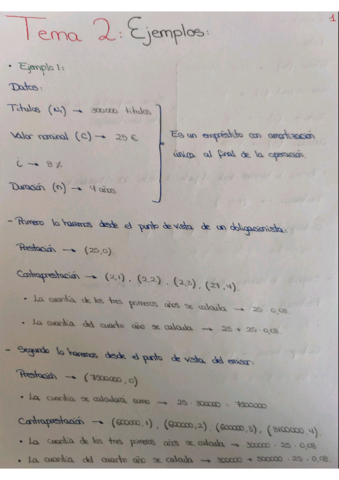 1
Tema 2: Ejemplos:
• Ejemplo 1:
Datos:
Títulos (N₁) → 300000 títulos
Valor nominal (C) → 25 €
i → 8 %
Duración (n) → 4 años
Es un empréstito con amortización
única al final de la operación
- Primero lo haremos desde el punto de vista de un obligacionista.
Prestación → (25,0).
Contraprestación → (2,1), (2,2), (2,3), (27,4).
• La cuantía de los tres primeros años se calcula → 25 · 0,08.
• La cuantía del cuarto año se calcula → 25 + 25 · 0,08.
- Segundo lo haremos desde el punto de vista del emisor:
Prestación → (7500000, 0)
• La cuantía se calculará como → 25 · 300000 = 7500000
Contraprestación → (600000, 1), (600000, 2), (600000, 3), (8100000, 4).
• La cuantía de los tres primeros años se calcula → 300000 · 25 · 0,08.
• La cuantía del cuarto año se calcula → 300000 + 300000 · 25 · 0,08.